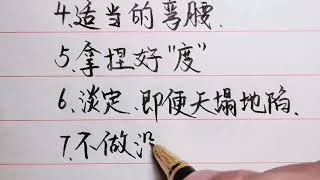 4.适当的弯腰.
5.拿捏好"度"
6.淡定、即便天塌地陷.
7.不做没